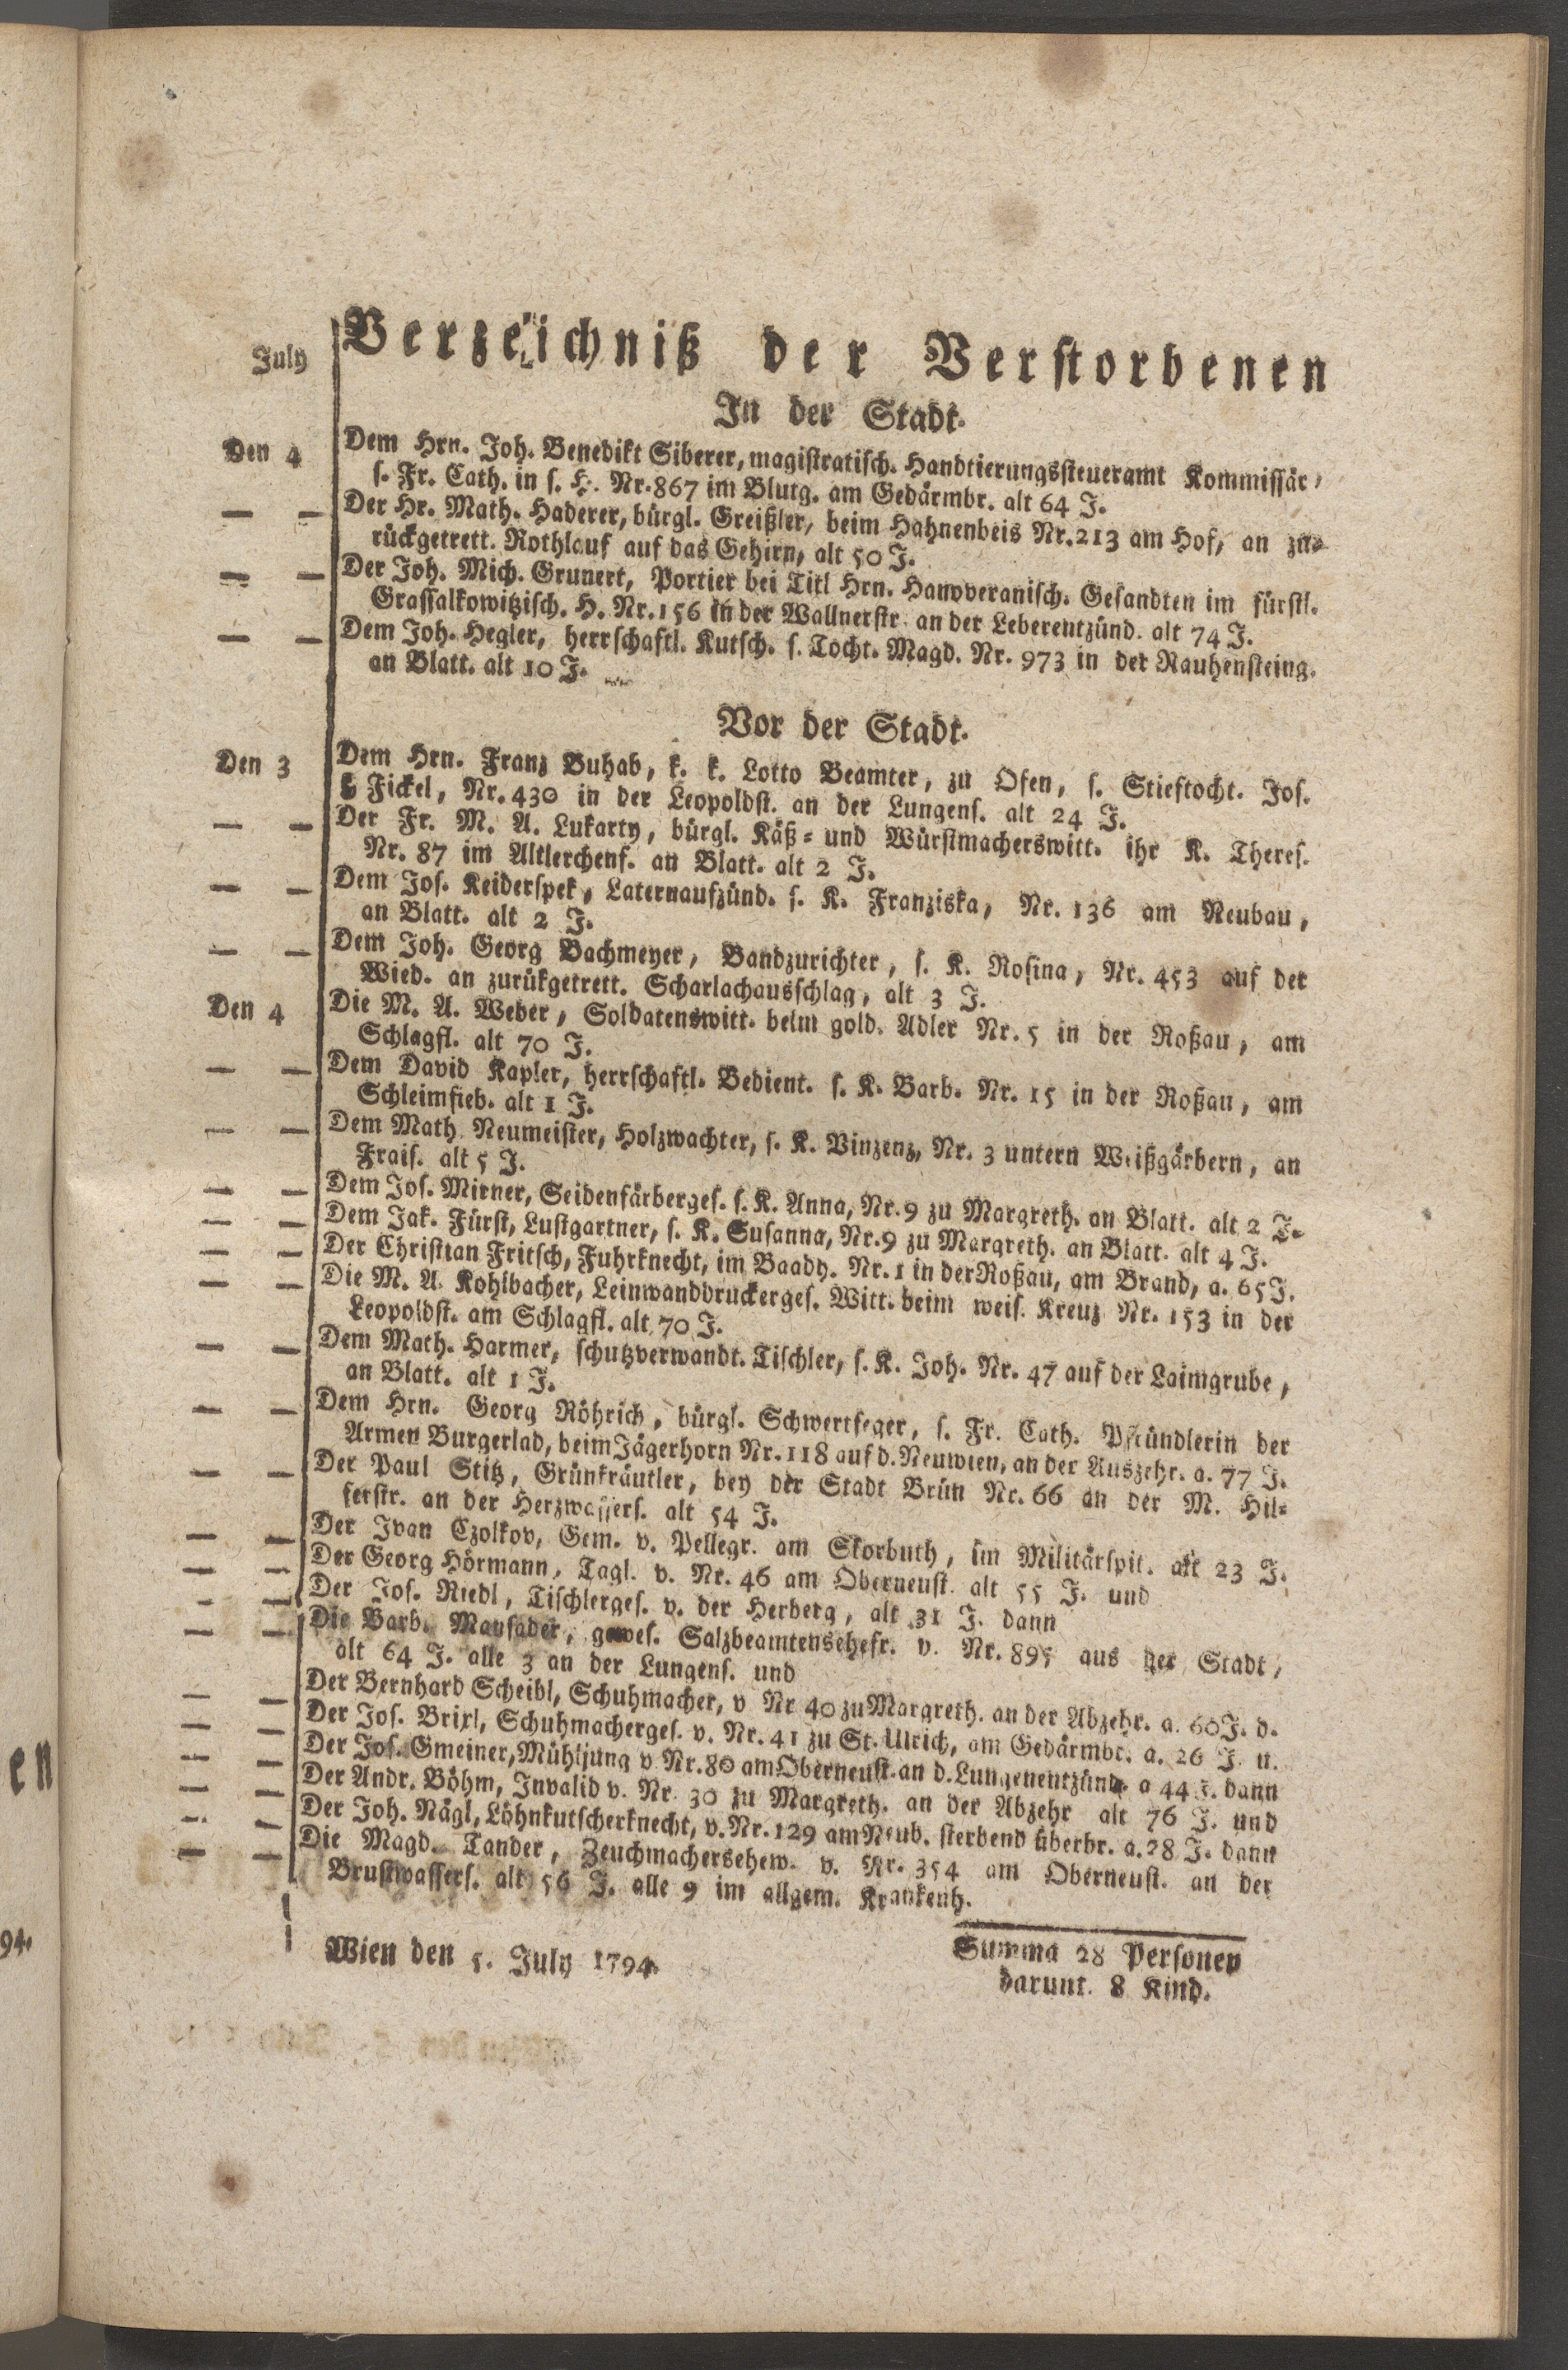 Verzeichniß der Verstorbenen
July
In der Stadt.
Den 4 Dem Hrn. Joh. Benedikt Siberer, magistratisch. Handtierungssteueramt Kommissär,
s. Fr. Cath. in s. H. Nr. 867 im Blutg. am Gedärmbr. alt 64 J.
— — Der Hr. Math. Haderer, bürgl. Greißler, beim Hahnenbeis Nr. 213 am Hof, an zu-
rückgetrett. Rothlauf auf das Gehirn, alt 50 J.
— — Der Joh. Mich. Grunert, Portier bei Titl Hrn. Hanoveranisch. Gesandten im fürstl.
Grassalkowitzisch. H. Nr. 156 in der Wallnerstr. an der Leberentzünd. alt 74 J.
— — Dem Joh. Hegler, herrschaftl. Kutsch. s. Tocht. Magd. Nr. 973 in der Rauhensteing.
an Blatt. alt 10 J.
Vor der Stadt.
Den 3 Dem Hrn. Franz Buhab, k. k. Lotto Beamter, zu Ofen, s. Stieftocht. Jos.
Fickel, Nr. 430 in der Leopoldst. an der Lungens. alt 24 J.
— — Der Fr. M. A. Lukarty, bürgl. Käß- und Würstmacherswitt. ihr K. Theres.
Nr. 87 im Altlerchenf. an Blatt. alt 2 J.
— — Dem Jos. Keiderspek, Laternaufzünd. s. K. Franziska, Nr. 136 am Neubau,
an Blatt. alt 2 J.
— — Dem Joh. Georg Bachmeyer, Bandzurichter, s. K. Rosina, Nr. 453 auf der
Wied. an zurükgetrett. Scharlachausschlag, alt 3 J.
Den 4 Die M. A. Weber, Soldatenswitt. beim gold. Adler Nr. 5 in der Roßau, am
Schlagfl. alt 70 J.
— — Dem David Kapler, herrschaftl. Bedient. s. K. Barb. Nr. 15 in der Roßau, am
Schleimfieb. alt 1 J.
— — Dem Math. Neumeister, Holzwachter, s. K. Vinzenz, Nr. 3 untern Weißgärbern, an
Frais. alt 5 J.
— — Dem Jos. Mirner, Seidenfärberges. s. K. Anna, Nr. 9 zu Margreth. an Blatt. alt 2 J.
— — Dem Jak. Fürst, Lustgartner, s. K. Susanna, Nr. 9 zu Margreth. an Blatt. alt 4 J.
— — Der Christian Fritsch, Fuhrknecht, im Baadh. Nr. 1 in der Roßau, am Brand, a. 65 J.
— — Die M. A. Kohlbacher, Leinwanddruckerges. Witt. beim weis. Kreuz Nr. 153 in der
Leopoldst. am Schlagfl. alt 70 J.
— — Dem Math. Harmer, schutzverwandt. Tischler, s. K. Joh. Nr. 47 auf der Laimgrube,
an Blatt. alt 1 J.
— — Dem Hrn. Georg Röhrich, bürgl. Schwertfeger, s. Fr. Cath. Pfründlerin der
Armen Burgerlad, beim Jägerhorn Nr. 118 auf d. Neuwien, an der Auszehr. a. 77 J.
— — Der Paul Stitz, Grünkräutler, bey der Stadt Brün Nr. 66 an der M. Hil-
ferstr. an der Herzwassers. alt 54 J.
— — Der Ivan Czolkov, Gem. v. Pellegr. am Skorbuth, im Militärspit. alt 23 J.
— — Der Georg Hörmann, Tagl. v. Nr. 46 am Oberneust. alt 55 J. und
— — Der Jos. Riedl, Tischlerges. v. der Herberg, alt 31 J. dann
— — Die Barb. Maysader, gewes. Salzbeamtensehefr. v. Nr. 895 aus der Stadt,
alt 64 J. alle 3 an der Lungens. und
— — Der Bernhard Scheibl, Schuhmacher, v Nr 40 zu Margreth. an der Abzehr. a. 60 J. d.
— — Der Jos. Brixl, Schuhmacherges. v. Nr. 41 zu St. Ulrich, am Gedärmbr. a. 26 J. u.
— — Der Jos. Gmeiner, Mühljung v Nr. 80 am Oberneust. an d. Lungenentzünd. a 44 J. dann
— — Der Andr. Böhm, Invalid v. Nr. 30 zu Margreth. an der Abzehr alt 76 J. und
— — Der Joh. Nägl, Löhnkutscherknecht, v. Nr. 129 am Neub. sterbend überbr. a. 28 J. dann
— — Die Magd. Tander, Zeuchmachersehew. v. Nr. 354 am Oberneust. an der
Brustwassers. alt 56 J. alle 9 im allgem. Krankenh.
Wien den 5. July 1794.
Summa 28 Personen
darunt. 8 Kind.
en
94.